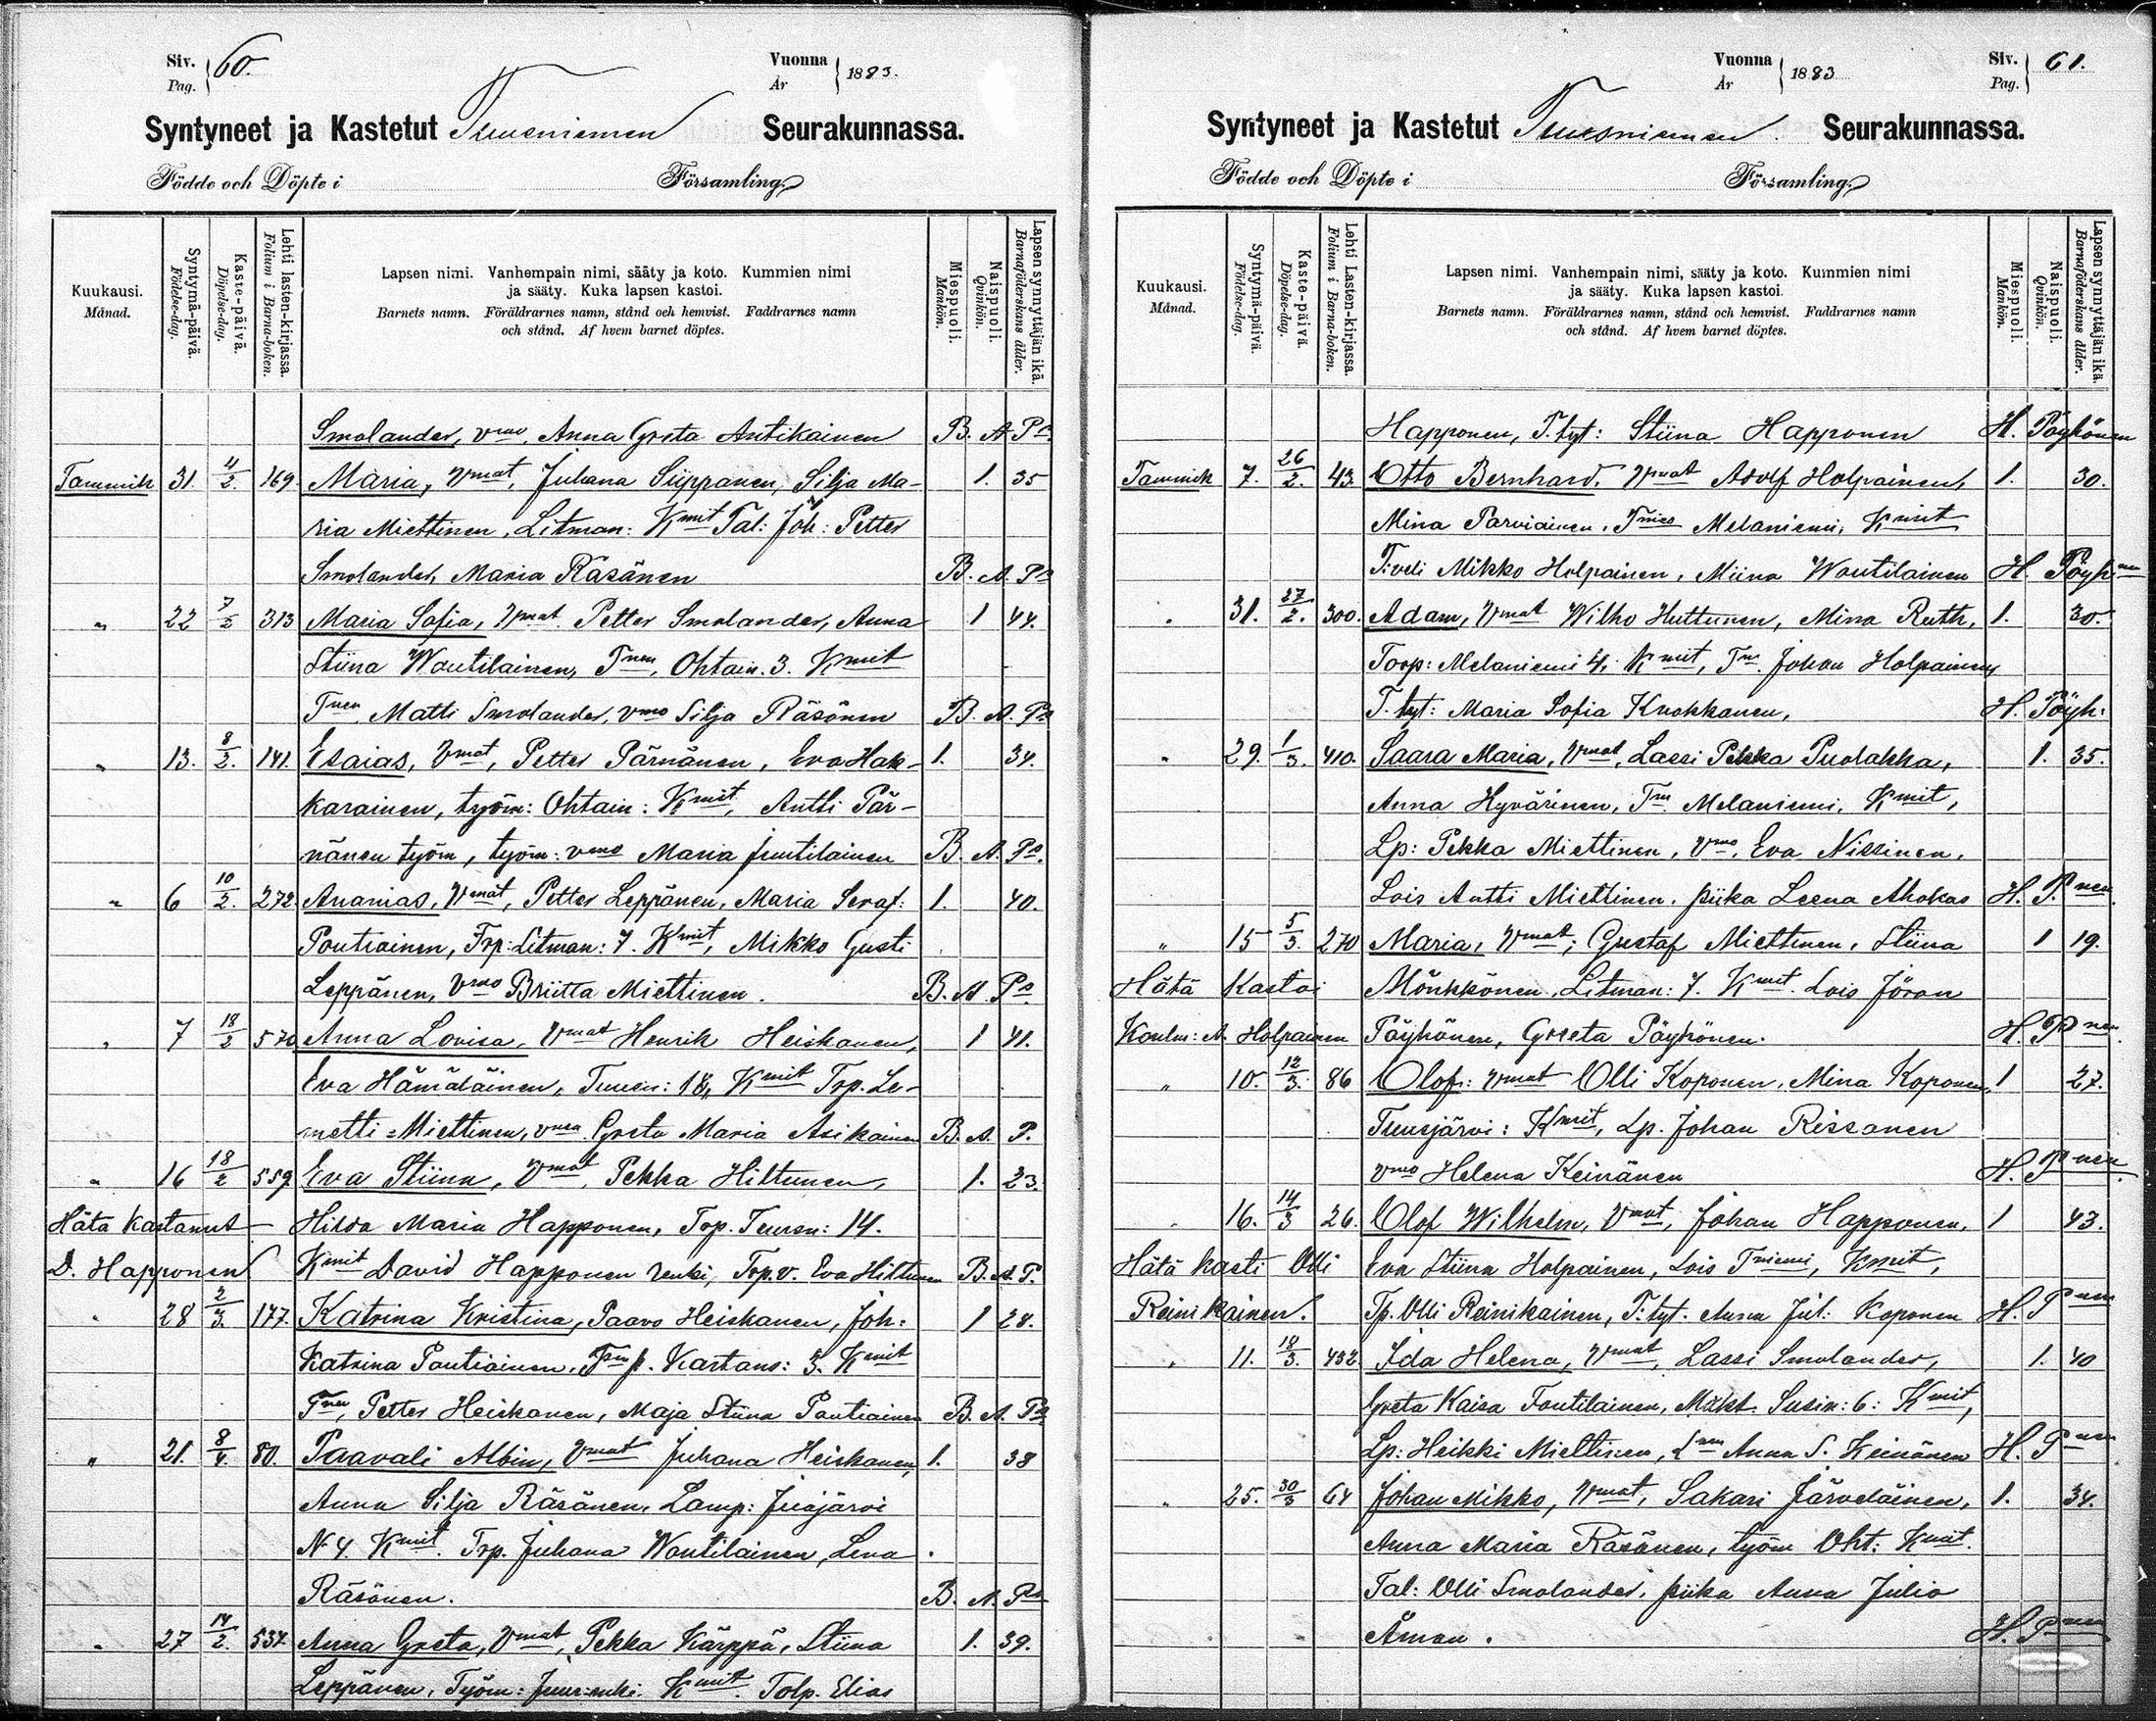 Siv. Pag. 60.
Vuonna År 1883.
Syntyneet ja Kastetut Tuusniemen Seurakunnassa.
Födde och Döpte i Församling.
Kuukausi. Månad.
Syntymä-päivä. Födelse-dag.
Kaste-päivä. Döpelse-dag.
Lehti lasten-kirjassa. Folium i Barna-boken.
Lapsen nimi. Vanhempain nimi, sääty ja koto. Kummien nimi
ja sääty. Kuka lapsen kastoi.
Barnets namn. Föräldrarnes namn, stånd och hemvist. Faddrarnes namn
och stånd. Af hvem barnet döptes.
Miespuoli. Mankön.
Naispuoli. Qvinkön.
Lapsen synnyttäjän ikä. Barnaföderskans ålder.
Smolander, vmo, Anna Greta Antikainen B. A. Ps.
Tammik 31. 4/2. 169. Maria, Vmat, Juhana Siippanen, Silja Ma- 1. 35
ria Miettinen, Litman: Kmit Tal: Joh: Petter
Smolander, Maria Räsänen B. A. Ps
" 22 7/2 313 Maria Sofia, Vmat Petter Smolander, Anna 1 44.
Stiina Woutilainen, Tnen, Ohtain. 3. Kmit
Tnen Matti Smolander, vmo Silja Räsönen B. A. Ps
" 13. 8/2. 141. Esaias, Vmat, Petter Pärnänen, Eva Hak- 1. 34.
karainen, työm: Ohtain: Kmit, Antti Pär-
nänen työm, työm: vmo Maria Juutilainen B. A. Ps.
" 6 10/2. 272. Ananias, Vmat, Petter Leppänen, Maria Seraf: 1. 40.
Poutiainen, Trp: Litman: 7. Kmit, Mikko Gusti
Leppänen, Vmo Briitta Miettinen. B. A Ps.
" 7 18/2 570 Anna Lovisa, Vmat Henrik Heiskanen, 1 41.
Eva Hämäläinen, Tuusn: 18, Kmit Trp. Le-
metti Miettinen, vmo Greta Maria Asikainen B. A. P.
" 16 18/2 559 Eva Stiina, Vmat, Pekka Hiltunen, 1. 23.
Hätä Kastanut Hilda Maria Happonen, Trp. Tuusn: 14.
D. Happonen Kmit David Happonen renki, Trp. v. Eva Hiltunen B. A. P.
" 28 2/3. 177. Katrina Kristina, Paavo Heiskanen, Joh: 1 28.
Katrina Poutiainen, Kartans: 3. Kmit
Tnen, Petter Heiskanen, Maja Stiina Poutiainen B. A. Ps
" 21. 8/4. 80. Paavali Albin, Vmat Juhana Heiskanen, 1. 38
Anna Silja Räsänen, Lamp: Juojärvi
N 4. Kmit. Trp. Juhana Woutilainen, Lena
Räsönen. B. A. Ps
" 27 14/2. 537. Anna Greta, Vmat, Pekka Kärppä, Stiina 1. 39.
Leppänen, Työm: Kmit. Tolp. Elias
Siv. Pag. 61.
Vuonna År 1883
Syntyneet ja Kastetut Tuusniemen. Seurakunnassa.
Födde och Döpte i Församling.
Kuukausi. Månad.
Syntymä-päivä. Födelse-dag.
Kaste-päivä. Döpelse-dag.
Lehti Lasten-kirjassa. Folium i Barna-boken.
Lapsen nimi. Vanhempain nimi, sääty ja koto. Kummien nimi
ja sääty. Kuka lapsen kastoi.
Barnets namn. Föräldrarnes namn, stånd och hemvist. Faddrarnes namn
och stånd. Af hvem barnet döptes.
Miespuoli. Mankön.
Naispuoli. Qvinkön.
Lapsen synnyttäjän ikä. Barnaföderskans ålder.
Happonen, T. tyt: Stiina Happonen H. Pöyhönen
Tammik 7. 26/2. 43. Otto Bernhard, Vmat Adolf Holpainen, 1. 30.
Mina Parviainen, Tmies Melaniemi, Kmit
T: veli Mikko Holpainen, Miina Woutilainen H. Pöyhnen
" 31. 27/2. 300. Adam, Vmat Wilho Huttunen, Mina Ruth, 1. 30.
Torp: Melaniemi 4. Kmit, Tm. Johan Holpainen
T. tyt: Maria Sofia Knokkanen, H. Pöyh:
" 29. 1/3. 410. Saara Maria, Vmat, Lassi Pekka Puolakka, 1. 35.
Anna Hyvärinen, Tm. Melaniemi, Kmit,
Lp: Pekka Miettinen, Vmo, Eva Nissinen,
Lois Antti Miettinen, piika Leena Ahokas H. Pnen
" 15 5/3. 270 Maria, Vmat; Gustaf Miettinen, Stiina 1 19.
Hätä Kastoi Mönkkönen, Litman: 7. Kmit. Lois Jöran
Koulm: A. Holpainen Pöyhönen, Greeta Pöyhönen. H. Pnen.
" 10. 12/3. 86 Olof: Vmat Olli Koponen, Mina Koponen, 1 27.
Tuusjärvi: Kmit, Lp. Johan Rissanen
vmo Helena Keinänen H. Pnen.
" 16. 14/3 26. Olof Wilhelm, Vmat, Johan Happonen, 1 43.
Hätä kasti Olli Eva Stiina Holpainen, Lois Tniemi, Kmit,
Reinikainen. Tp. Olli Reinikainen, T: tyt. Anna Jul: Koponen H. Pnen
" 11. 18/3. 432 Ida Helena, Vmat, Lassi Smolander, 1. 40
Greta Kaisa Toutilainen, Mäkt. Susin: 6: Kmit,
Lp: Heikki Miettinen, Anna S. Keinänen H. Pnen
" 25. 30/3 64 Johan Mikko, Vmat, Sakari Järveläinen, 1. 34.
Anna Maria Räsänen, työm Oht: Kmit.
Tal: Olli Smolander, piika Anna Julia
Åman. H. Pnen